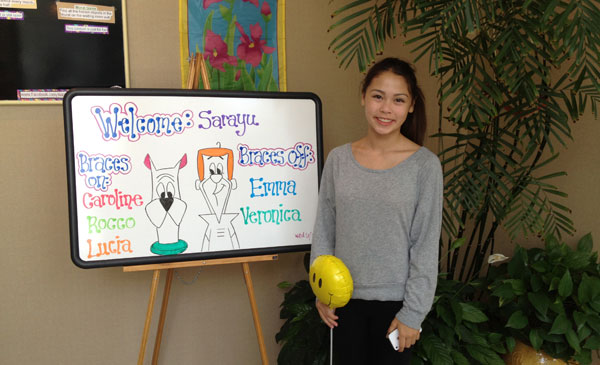 Welcome: Sarayu
Braces on:
Caroline
Rocco
Lucia
Braces off:
Emma
Veronica